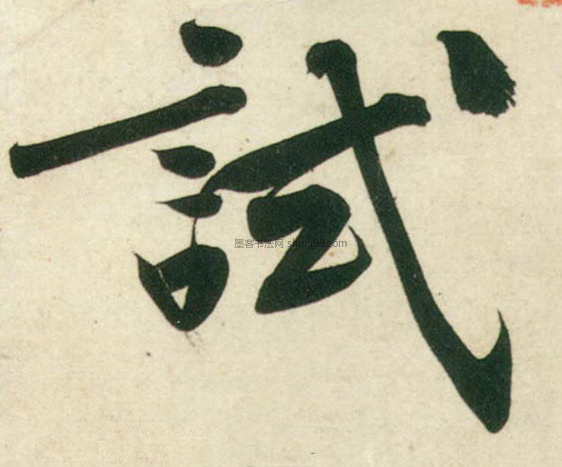 試
墨客书法网 shufa99.com